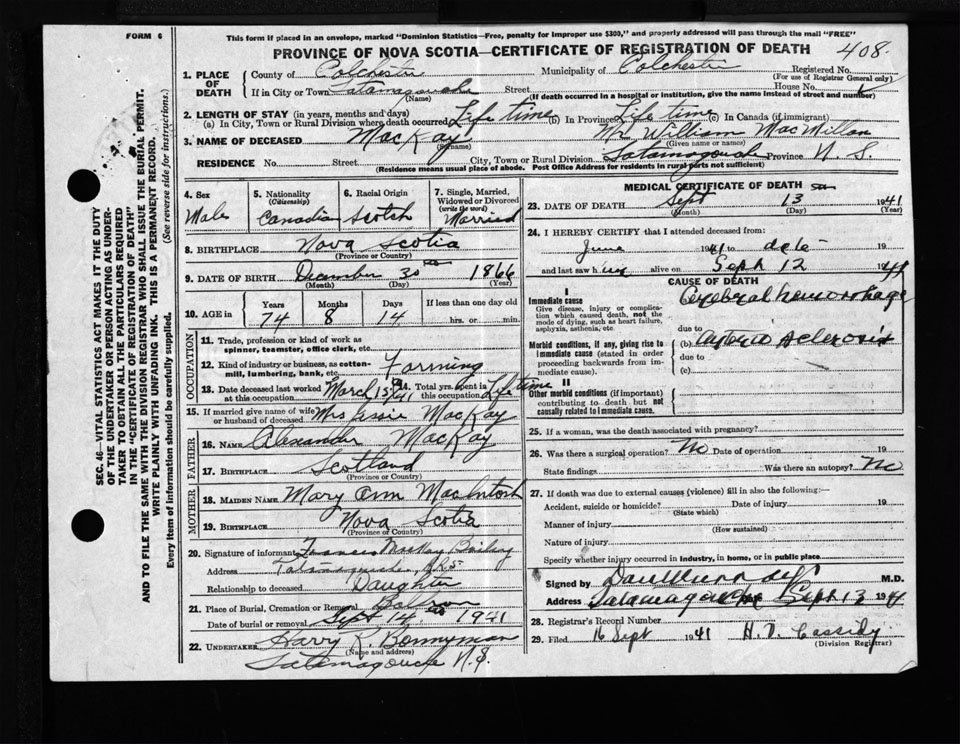 FORM 6
This form if placed in an envelope, marked "Dominion Statistics—Free, penalty for improper use $300," and properly addressed will pass through the mail "FREE"
PROVINCE OF NOVA SCOTIA—CERTIFICATE OF REGISTRATION OF DEATH
408
SEC. 46—VITAL STATISTICS ACT MAKES IT THE DUTY
OF THE UNDERTAKER OR PERSON ACTING AS UNDER-
TAKER TO OBTAIN ALL THE PARTICULARS REQUIRED
IN THE "CERTIFICATE OF REGISTRATION OF DEATH"
AND TO FILE THE SAME WITH THE DIVISION REGISTRAR WHO SHALL ISSUE THE BURIAL PERMIT.
WRITE PLAINLY WITH UNFADING INK. THIS IS A PERMANENT RECORD.
Every item of Information should be carefully supplied. (See reverse side for instructions.)
1. PLACE OF DEATH
County of Colchester Municipality of Colchester Registered No.
(For use of Registrar General only)
If in City or Town Tatamagouche Street House No.
(Name) (If death occurred in a hospital or institution, give the name instead of street and number)
2. LENGTH OF STAY (in years, months and days)
(a) In City, Town or Rural Division where death occurred Life time (b) In Province Life time (c) In Canada (if immigrant)
3. NAME OF DECEASED MacKay Mr. William MacMillan
(Surname) (Given name or names)
RESIDENCE No. Street City, Town or Rural Division Tatamagouche Province N. S.
(Residence means usual place of abode. Post Office Address for residents in rural parts not sufficient)
4. Sex Male
5. Nationality (Citizenship) Canadian
6. Racial Origin Scotch
7. Single, Married, Widowed or Divorced (write the word) Married
8. BIRTHPLACE Nova Scotia
(Province or Country)
9. DATE OF BIRTH December 30 1866
(Month) (Day) (Year)
10. AGE in Years Months Days If less than one day old
74 8 14 hrs. or min.
11. Trade, profession or kind of work as
spinner, teamster, office clerk, etc.
12. Kind of industry or business, as cotton-
mill, lumbering, bank, etc. Farming
13. Date deceased last worked at this occupation March 15 41
14. Total yrs. spent in this occupation Life time
15. If married give name of wife
or husband of deceased Mrs Jessie MacKay
FATHER
16. NAME Alexander MacKay
17. BIRTHPLACE Scotland
(Province or Country)
MOTHER
18. MAIDEN NAME Mary Ann MacIntosh
19. BIRTHPLACE Nova Scotia
(Province or Country)
20. Signature of informant Frances MacKay Bailey
Address Tatamagouche, N.S.
Relationship to deceased Daughter
21. Place of Burial, Cremation or Removal
Date of burial or removal Sept 14 1941
22. UNDERTAKER Harry R. Bonnyman
(Name and address)
Tatamagouche N.S.
MEDICAL CERTIFICATE OF DEATH
23. DATE OF DEATH Sept 13 1941
(Month) (Day) (Year)
24. I HEREBY CERTIFY that I attended deceased from:
June 1941 to date 19
and last saw him alive on Sept 12 1941
CAUSE OF DEATH
I
Immediate cause
Give disease, injury or complication which caused death, not the mode of dying, such as heart failure, asphyxia, asthenia, etc.
Cerebral hemorrhage
due to
Morbid conditions, if any, giving rise to immediate cause (stated in order proceeding backwards from immediate cause).
(b) Arterio sclerosis
due to
(c)
II
Other morbid conditions (if important) contributing to death but not causally related to immediate cause.
25. If a woman, was the death associated with pregnancy?
26. Was there a surgical operation? No Date of operation 19
State findings Was there an autopsy? No
27. If death was due to external causes (violence) fill in also the following:—
Accident, suicide or homicide? Date of injury 19
(State which)
Manner of injury
(How sustained)
Nature of injury
Specify whether injury occurred in industry, in home, or in public place
Signed by M.D.
Address Tatamagouche Sept 13 194
28. Registrar's Record Number
29. Filed 16 Sept 1941 H. D. Cassidy
(Division Registrar)